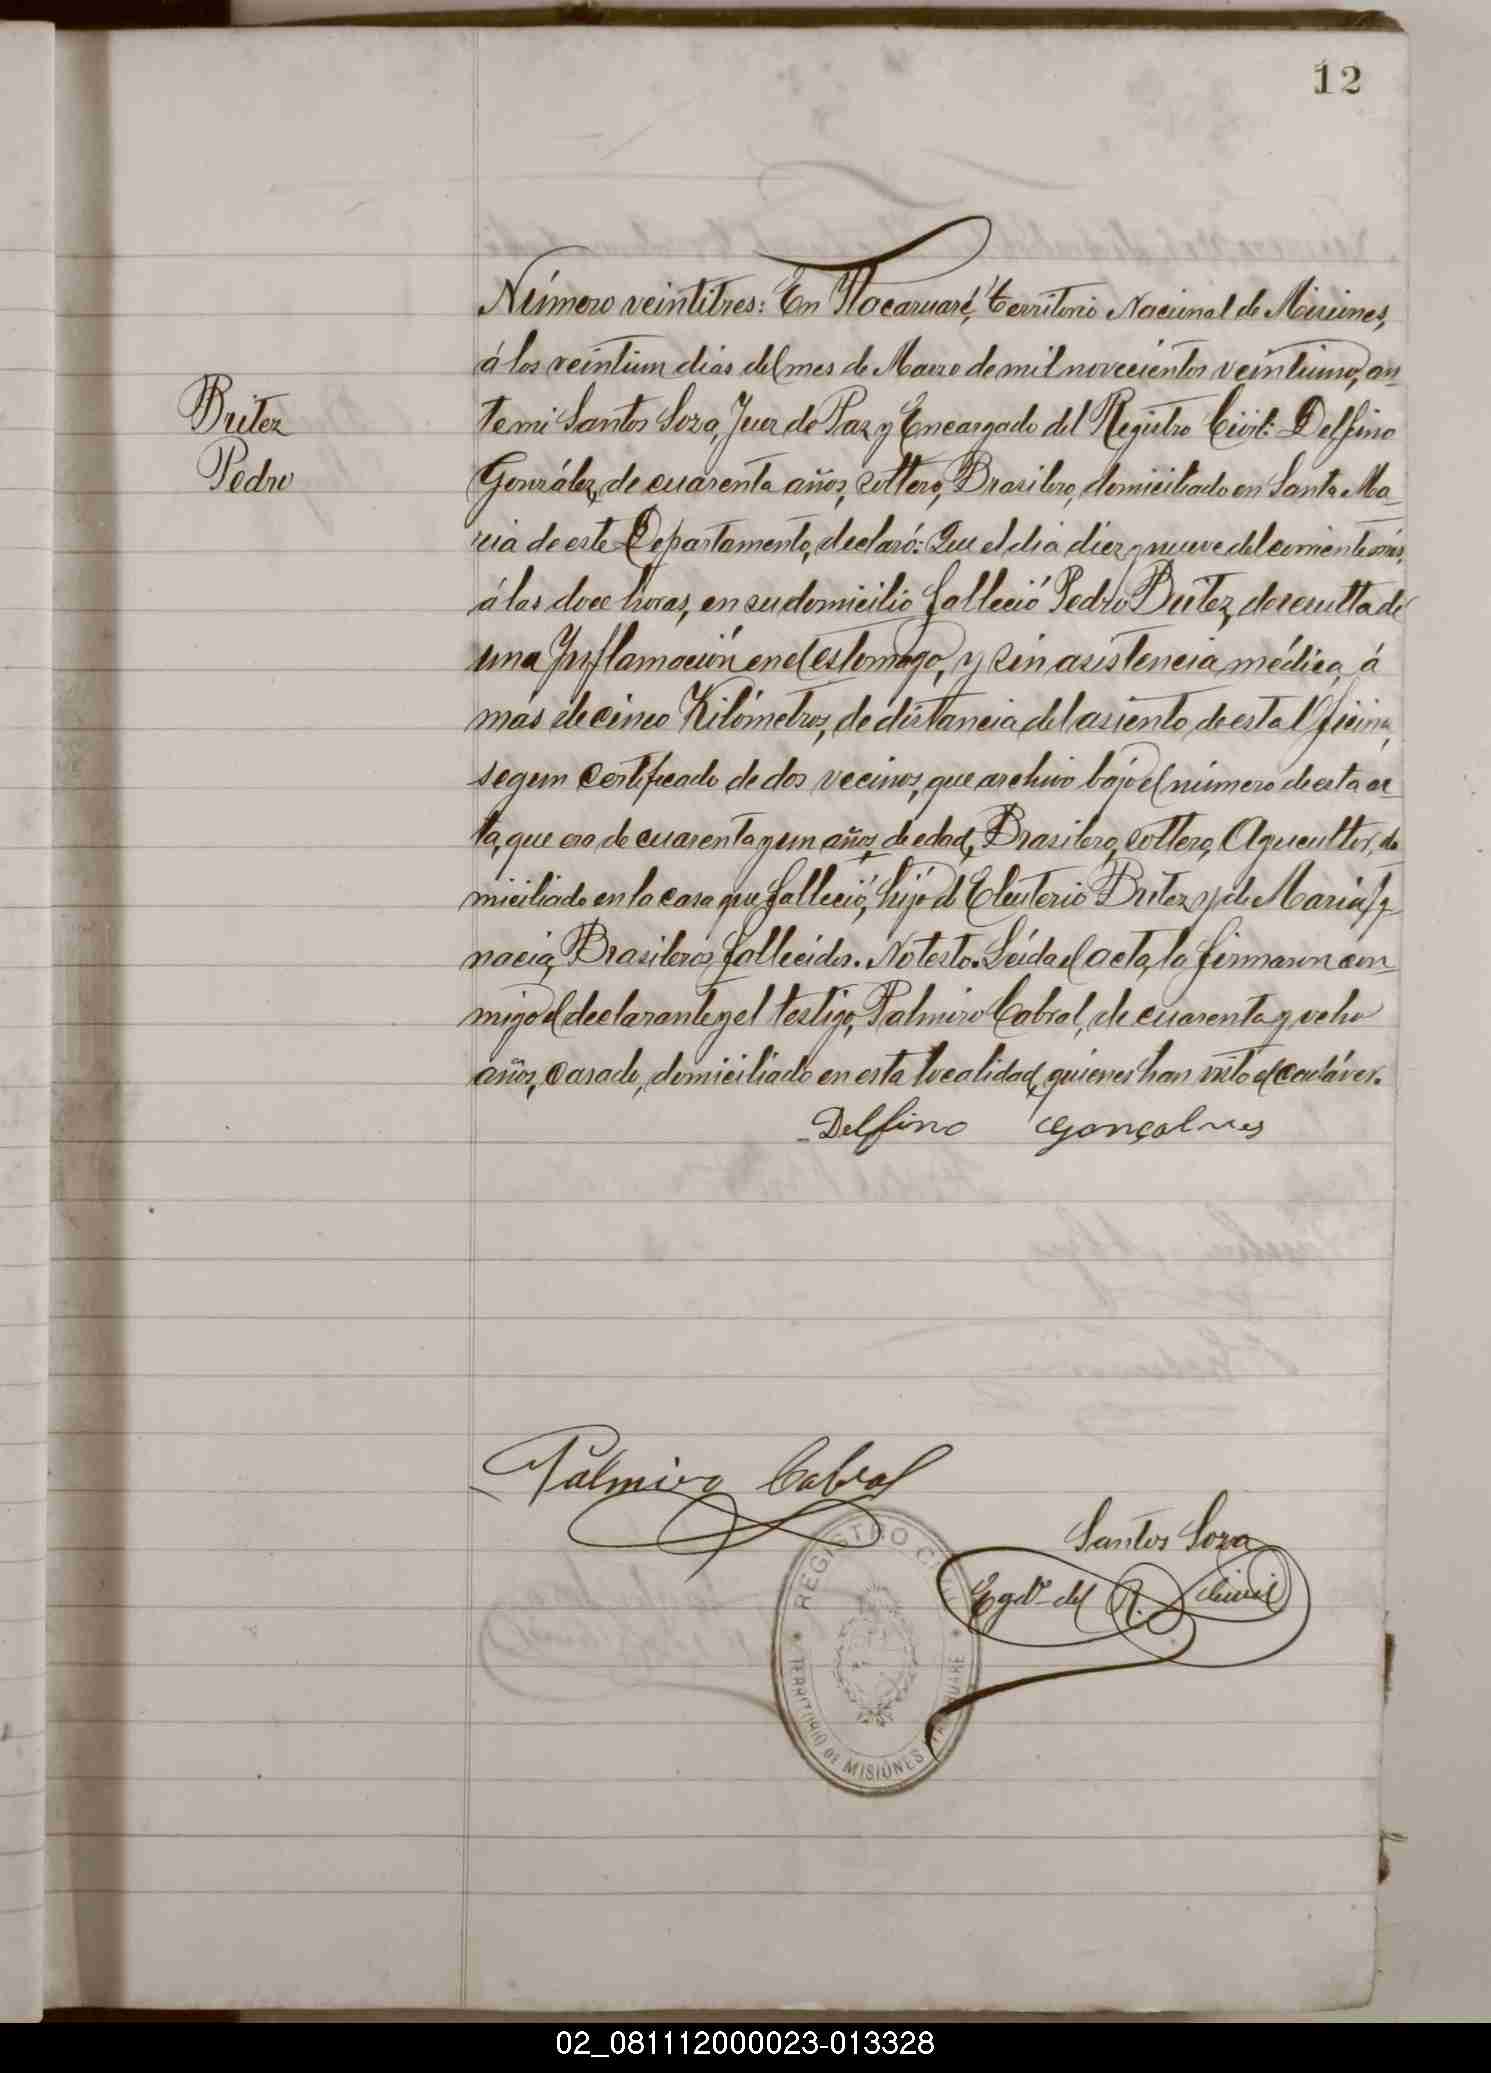 12
Número veintitres: En Itacaruaré, territorio Nacional de Misiones,
á los veintiun dias del mes de Marzo de mil novecientos veintiuno, an-
Britez
te mi Santos Soza, Juez de Paz y Encargado del Registro Civil: Delfino
Pedro
González, de cuarenta años, soltero, Brasilero, domiciliado en Santa Ma-
ria de este Departamento, declaró: Que el dia diez y nueve del corriente mes,
á las doce horas, en su domicilio falleció Pedro Britez, de resulta de
una Inflamación en el estomago, y sin asistencia médica, á
más de cinco Kilómetros, de distancia del asiento, de esta Oficina,
segun certificado de dos vecinos, que archivo bajo el número de esta ac-
ta, que era de cuarenta y un años, de edad, Brasilero, soltero, Agricultor, do
miciliado en la casa que falleció, hijo de Eleuterio Britez y de Maria Ig-
nacia, Brasileros fallecidos. No testo. Leída el acta, la firmaron con-
migo el declarante y el testigo, Palmiro Cabral, de cuarenta y ocho
años, casado, domiciliado en esta localidad, quienes han visto el cadáver.
Delfino Gonçalves
Palmiro Cabral
Santos Soza
Egdo. del R. Civil
REGISTRO CIVIL
TERRITORIO DE MISIONES ITACARUARE
02_081112000023-013328